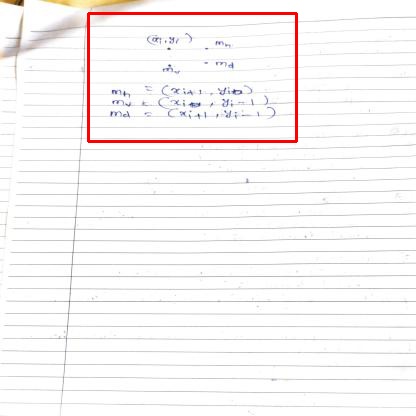 (xi, yi) . mh
. mv . md
mh = (xi+1, yi)
mv = (xi, yi-1)
md = (xi+1, yi-1)